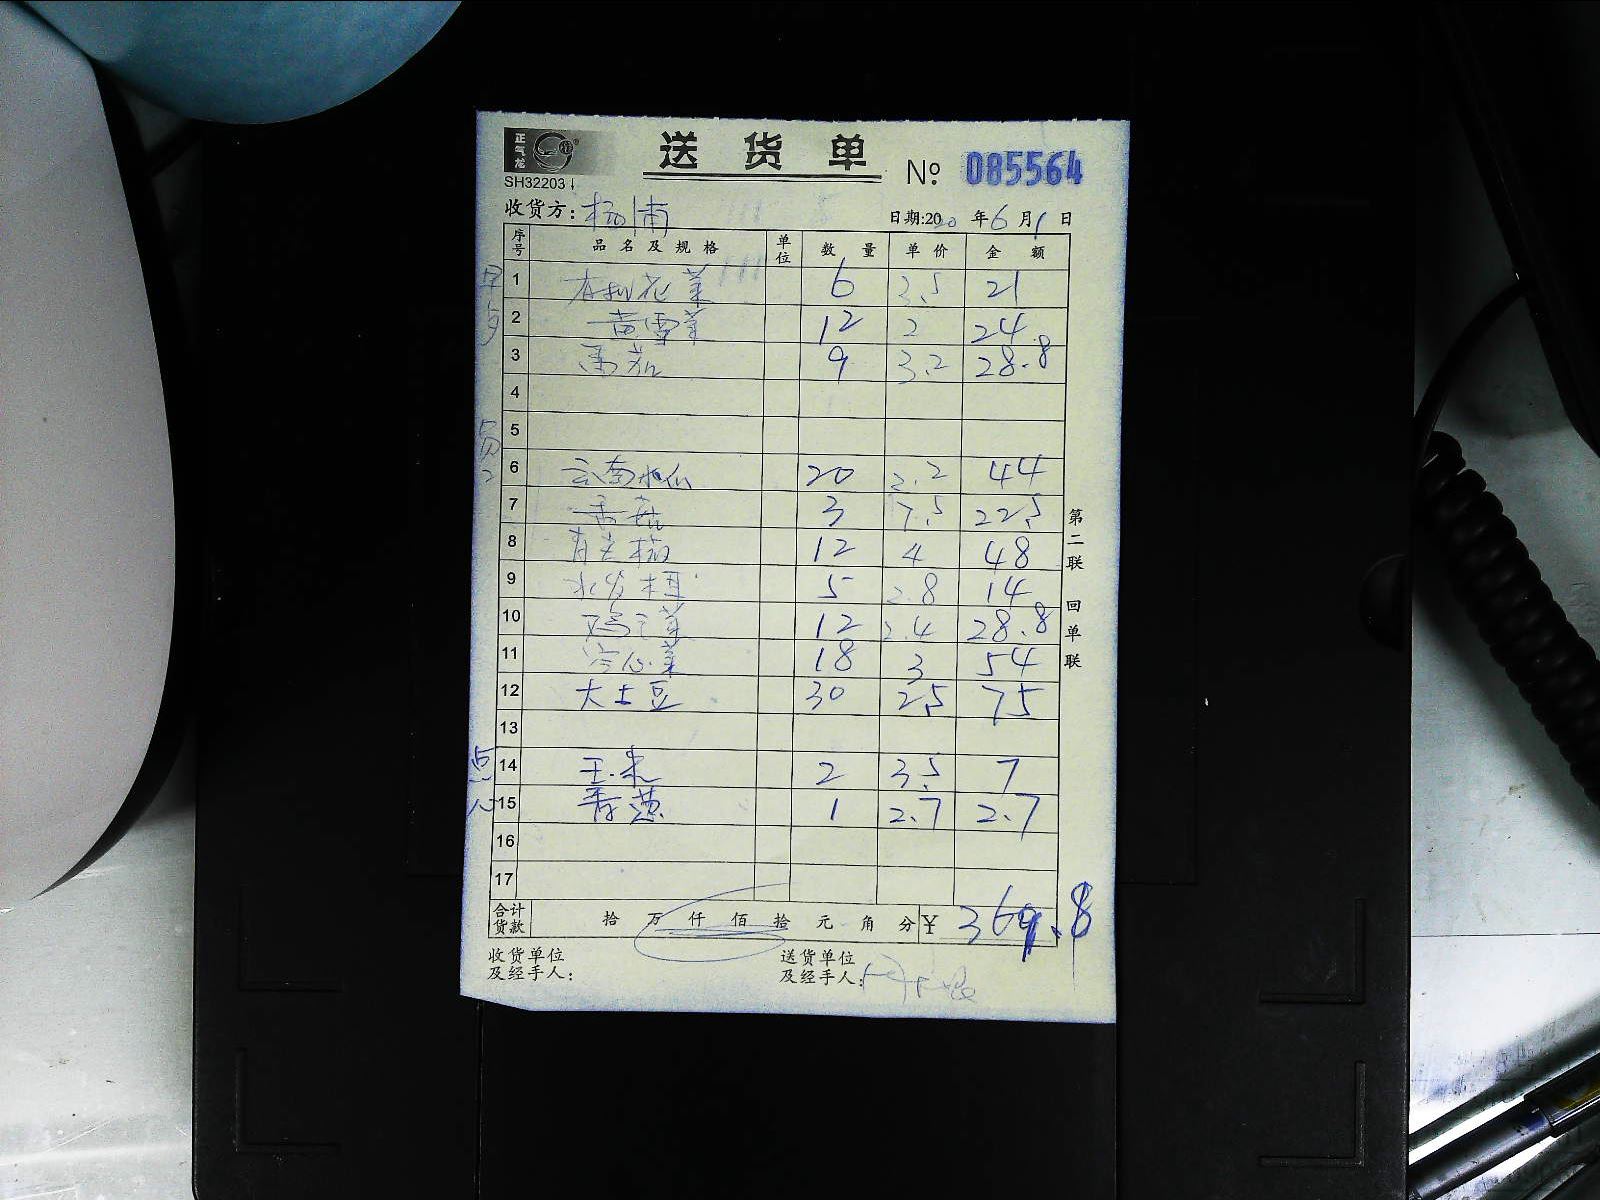 正气龙
送货单 № 085564
SH32203
收货方：杨浦 日期:2020年6月1日
序号 品名及规格 单位 数量 单价 金额
早点
1 有机花菜 6 3.5 21
2 黄雪菜 12 2 24
3 番茄 9 3.2 28.8
4
5
6 云南水瓜 20 2.2 44
7 香菇 3 7.5 22.5
8 青尖椒 12 4 48
9 5 2.8 14
10 鸡毛菜 12 2.4 28.8
11 空心菜 18 3 54
12 大土豆 30 2.5 75
13
点心
14 玉米 2 3.5 7
15 香葱 1 2.7 2.7
16
17
合计货款 拾 万 仟 佰 拾 元 角 分 ¥ 369.8
收货单位及经手人： 送货单位及经手人：
第二联 回单联